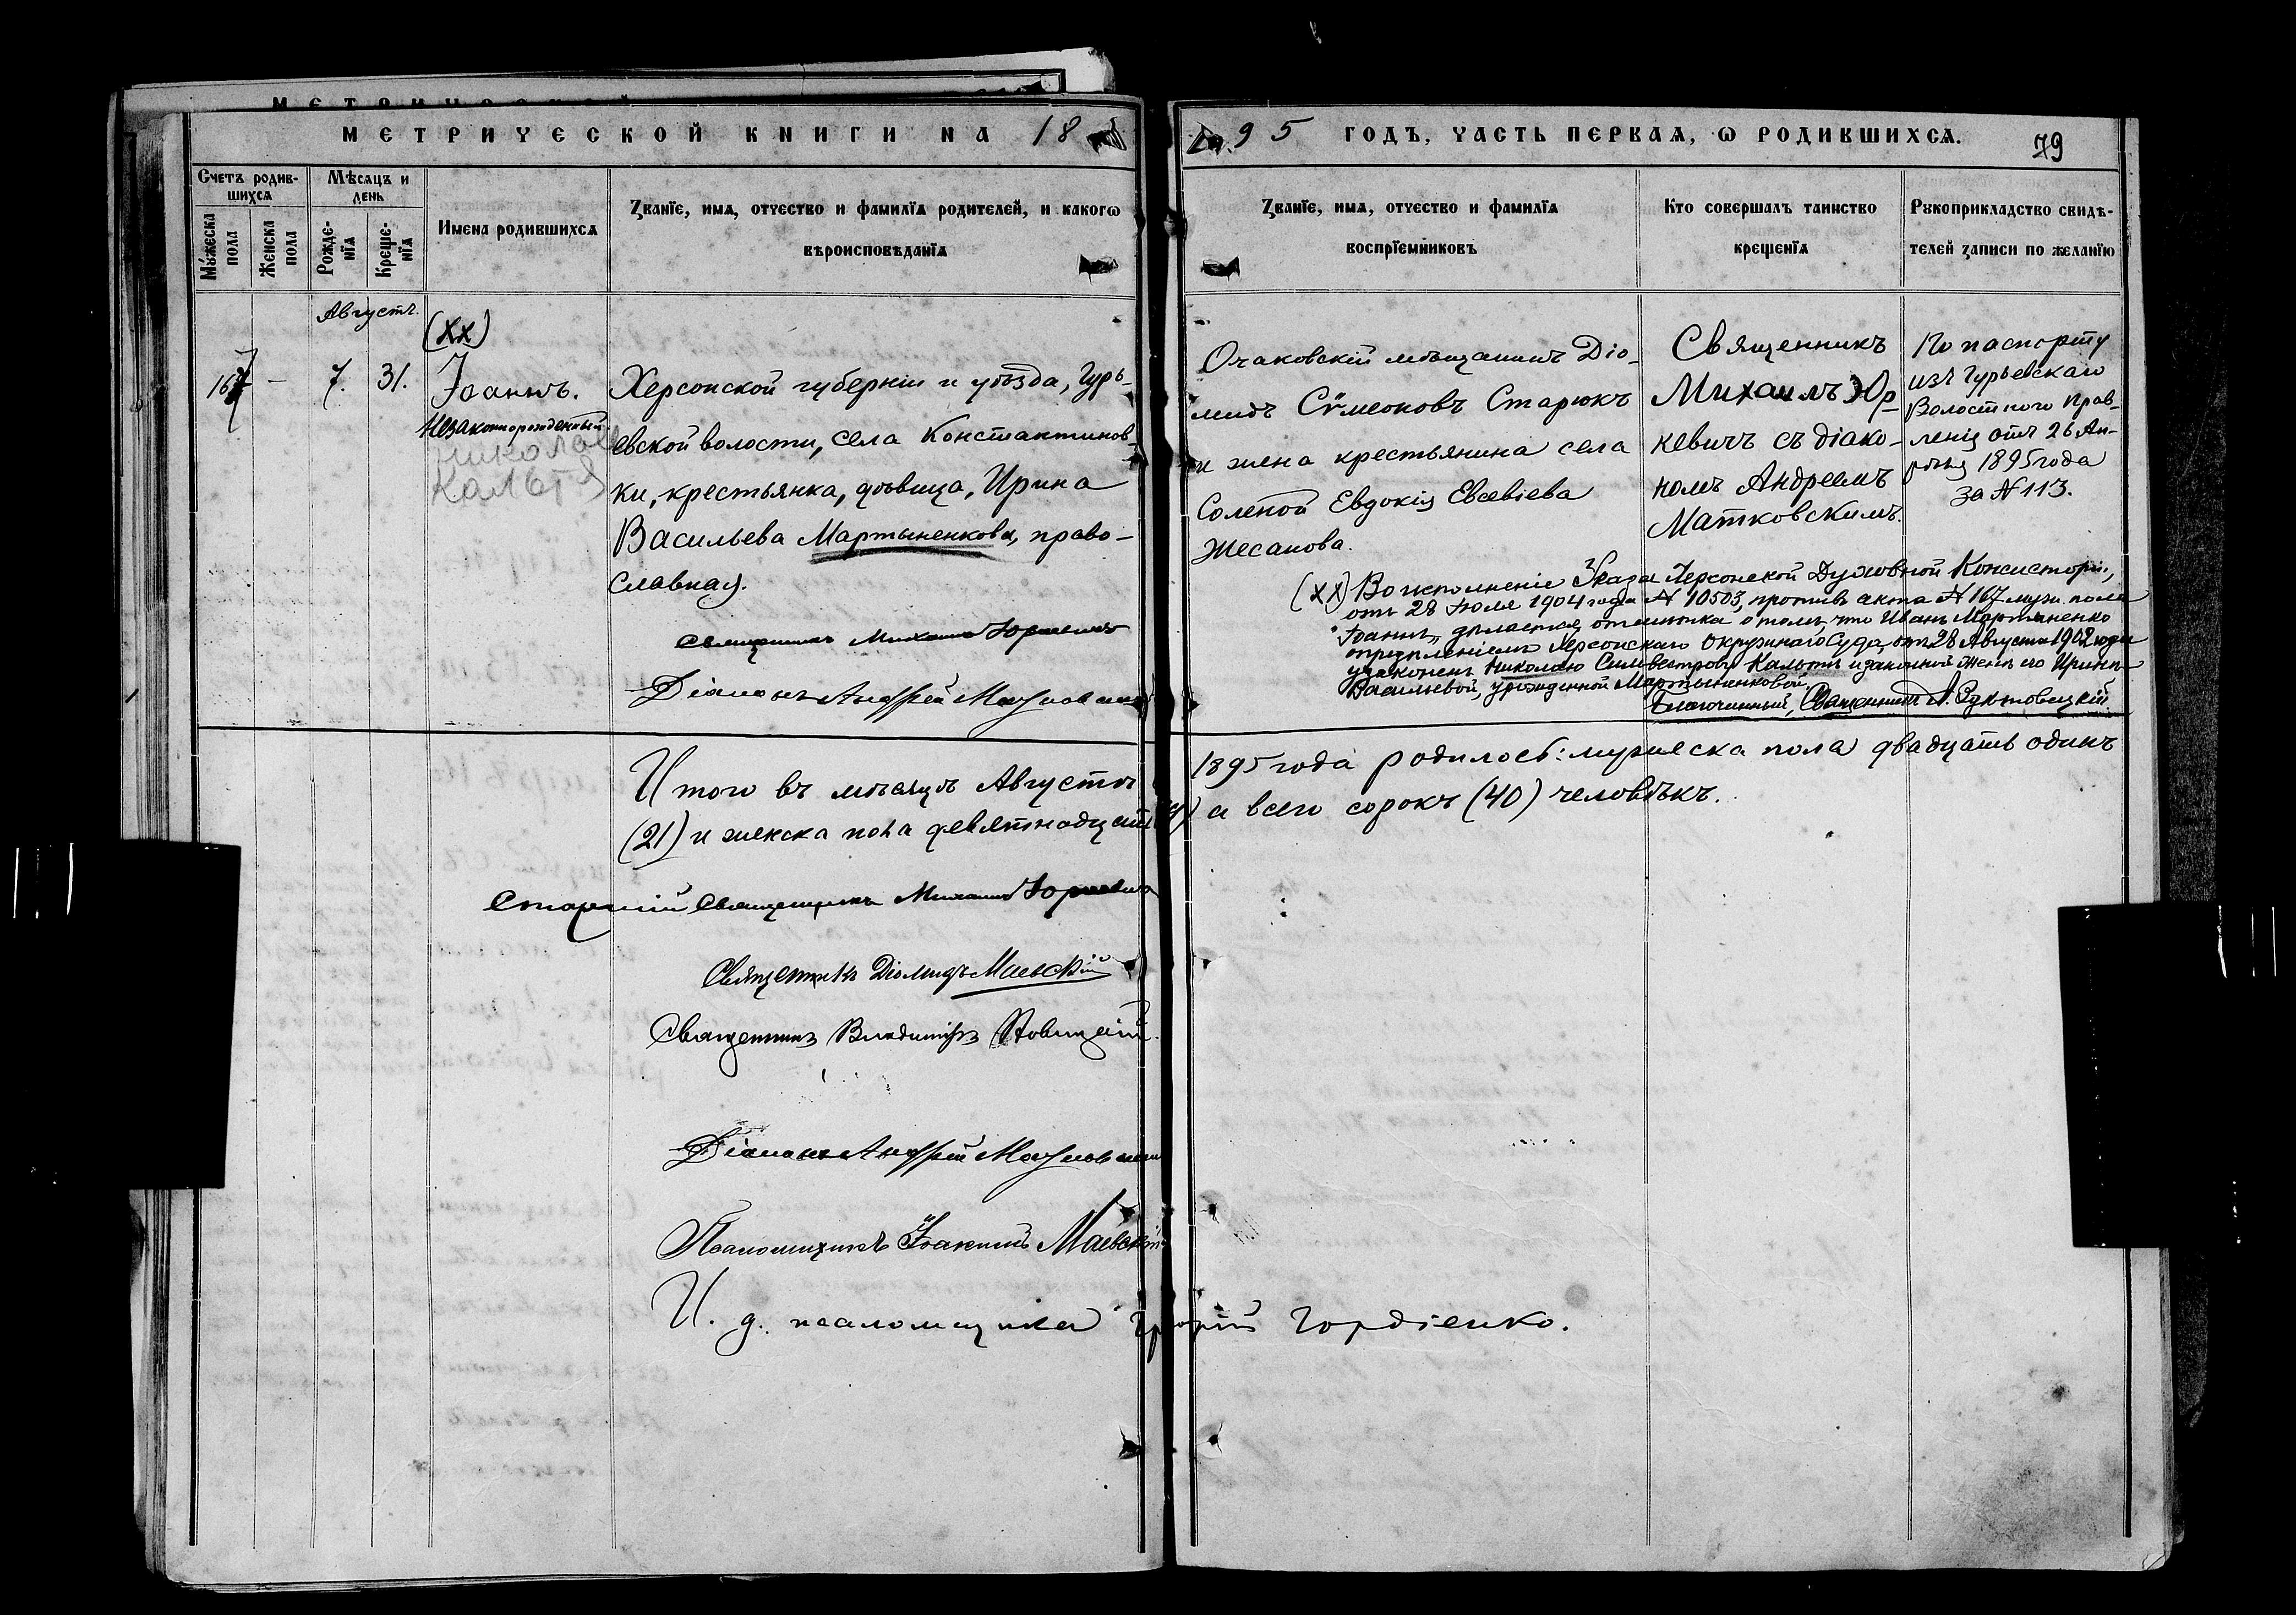 МЕТРИЧЕСКОЙ КНИГИ НА 18
95 ГОДЪ, ЧАСТЬ ПЕРВАЯ, Ѡ РОДИВШИХСЯ.
79
Счетъ родив-
шихся
Мѣсяцъ и
день
Мужеска
пола
Женска
пола
Рожде-
нїя
Креще-
нїя
Имена родившихся
Званїе, имя, отчество и фамилїя родителей, и какогѡ
вѣроисповѣданїя
Званїе, имя, отчество и фамилїя
воспрїемниковъ
Кто совершалъ таинство
крещенїя
Рукоприкладство свидѣ-
телей записи по желанїю
Августъ.
(хх)
167 – 7. 31.
Іоаннъ.
Незаконнорожденный
Николай
Кальтя
Херсонской губерніи и уѣзда, Гурь-
евской волости, села Константинов-
ки, крестьянка, дѣвица, Ирина
Васильева Мартыненкова, право-
славная.
Священникъ Михаилъ Юркевичъ
Діаконъ Андрей Матковскій
Очаковскій мѣщанинъ Діо-
мидъ Сѵмеоновъ Старюкъ
и жена крестьянина села
Соленой Евдокія Евсевіева
Жесанова.
Священникъ
Михаилъ Юр-
кевичъ съ діако-
номъ Андреемъ
Матковскимъ.
По паспорту
изъ Гурьевскаго
Волостного Прав-
ленія отъ 26 Ап-
рѣля 1895 года
за № 113.
(хх) Во исполненіе Указа Херсонской Духовной Консисторіи,
отъ 28 Іюля 1904 года № 10503, противъ акта № 167 муж. пола
"Іоаннъ" дѣлается отмѣтка о томъ, что Иванъ Мартыненко
опредѣленіемъ Херсонскаго Окружнаго Суда, отъ 28 Августа 1902 года
узаконенъ Николаю Сильвестрову Кальтѣ и законной женѣ его Иринѣ
Васильевой, урожденной Мартыненковой.
Благочинный, Священникъ А.
Итого въ мѣсяцѣ Августѣ 1895 года родилось: мужеска пола двадцать одинъ
(21) и женска пола девятнадцать (19) а всего сорокъ (40) человѣкъ.
Старшій Священникъ Михаилъ Юркевичъ
Священникъ Діомидъ Маевскій
Священникъ Владиміръ Новицкій.
Діаконъ Андрей Матковскій
Псаломщикъ Іоакимъ Маевскій
И. д. псаломщика Гордіенко.